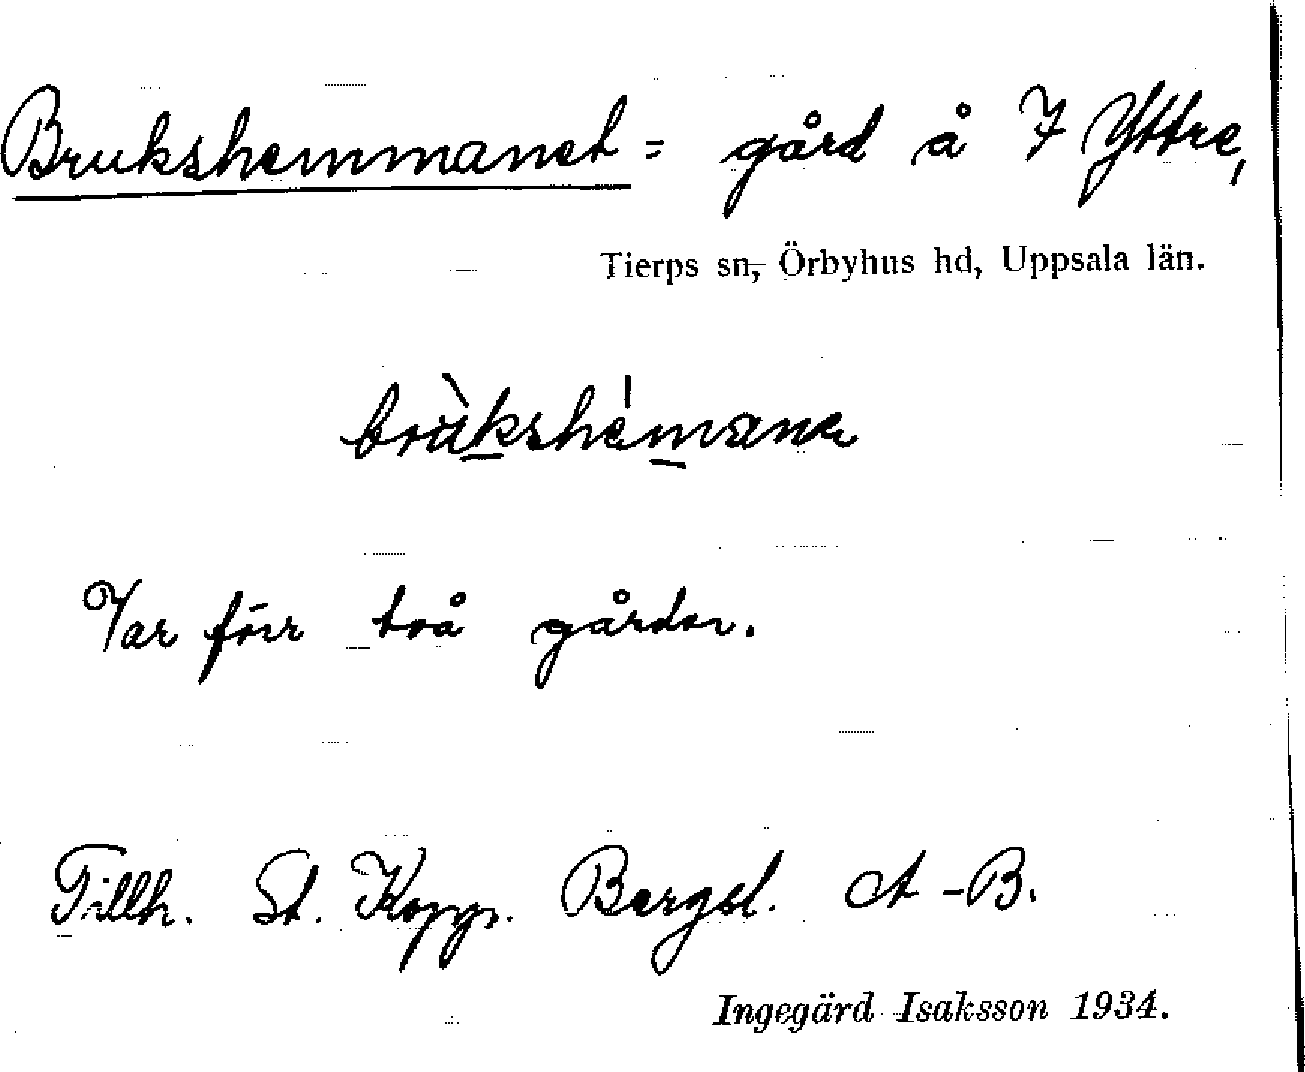 Brukshemmanet = gård å 7 Yttre,
Tierps sn, Örbyhus hd, Uppsala län.
brùkshémana
Var förr två gårdar.
Tillh. St. Kopp. Bergsl. A-B.
Ingegärd Isaksson 1934.